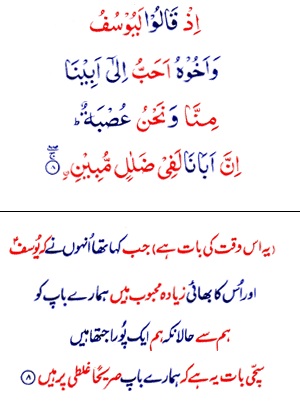 اِذْ قَالُوْا لَيُوْسُفُ
وَاَخُوْهُ اَحَبُّ اِلٰۤى اَبِيْنَا
مِنَّا وَنَحْنُ عُصْبَةٌ ؕ
اِنَّ اَبَانَا لَفِيْ ضَلٰلٍ مُّبِيْنِ ۟ۙ ۸
(یہ اس وقت کی بات ہے) جب کہا تھا اُنہوں نے کہ یُوسف ؑ
اور اُس کا بھائی زیادہ محبوب ہیں ہمارے باپ کو
ہم سے حالانکہ ہم ایک پُورا جتھا ہیں
سچّی بات یہ ہے کہ ہمارے باپ صریحًا غلطی پر ہیں ۸